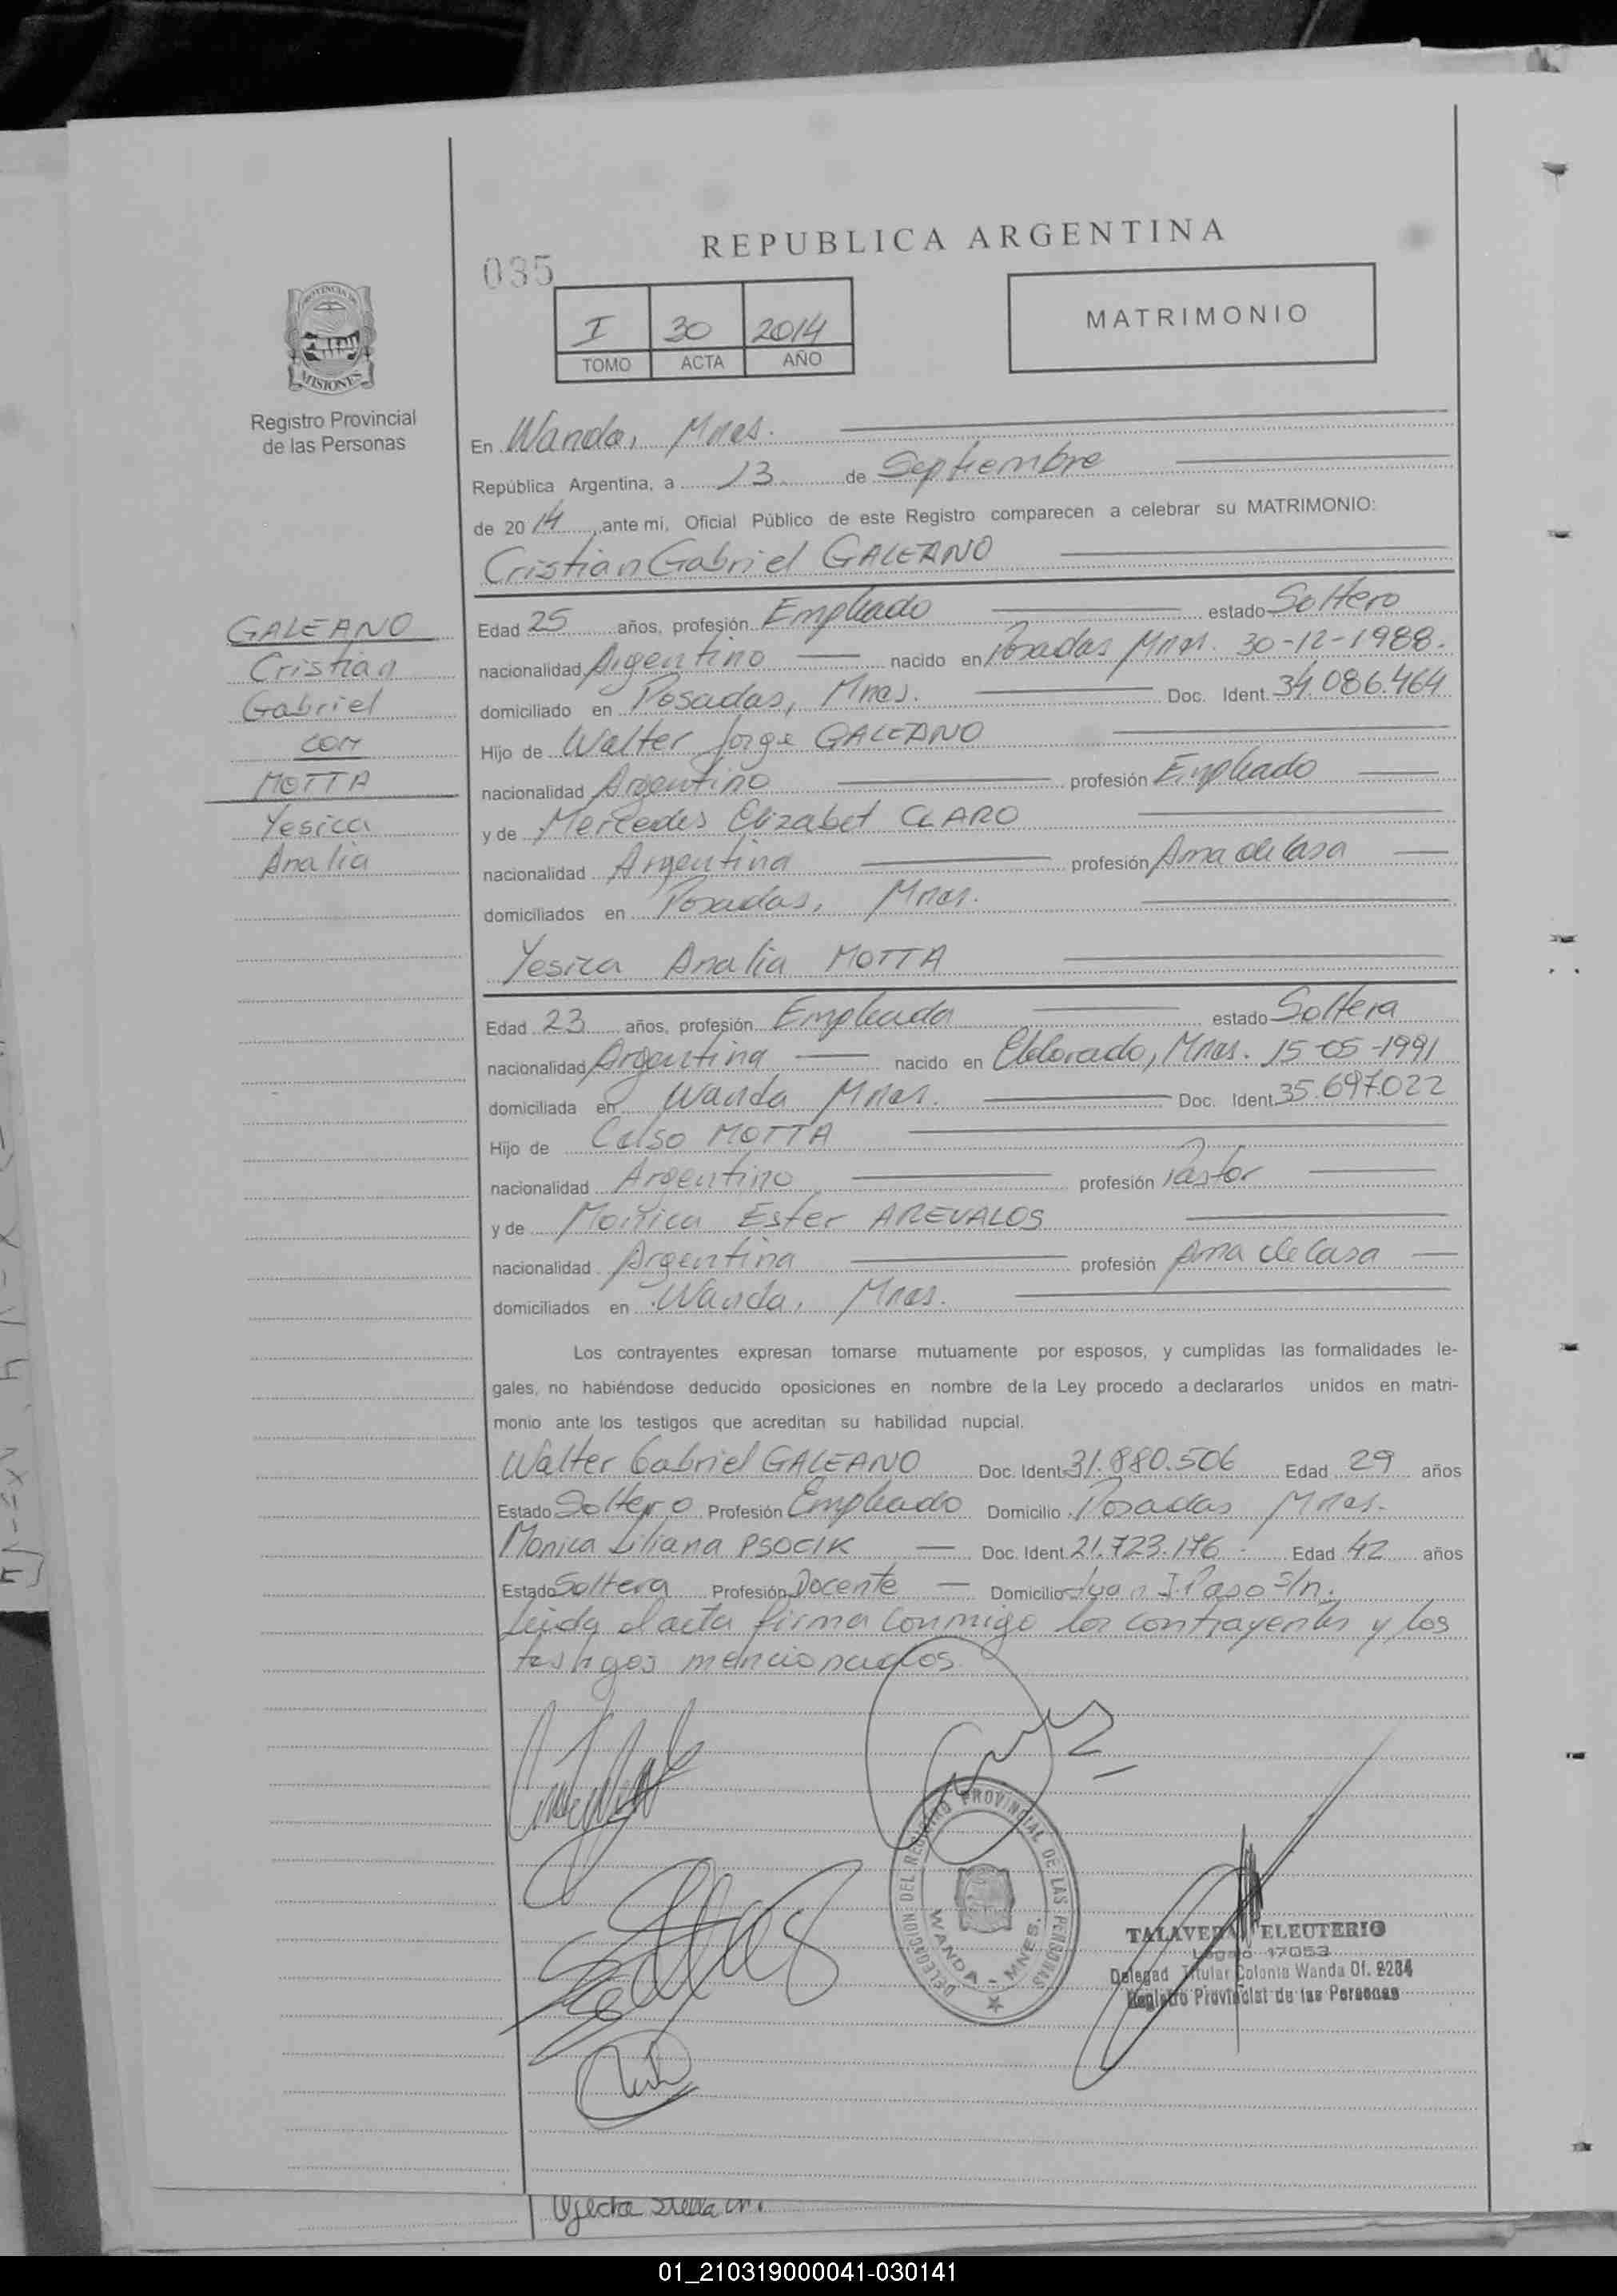 REPUBLICA ARGENTINA
035
I 30 2014
TOMO ACTA AÑO
MATRIMONIO
PROVINCIA DE
MISIONES
Registro Provincial
de las Personas
GALEANO
Cristian
Gabriel
con
MOTTA
Yesica
Analia
En Wanda, Mnes.
República Argentina, a 13 de Septiembre
de 2014, ante mi, Oficial Público de este Registro comparecen a celebrar su MATRIMONIO:
Cristian Gabriel GALEANO
Edad 25 años, profesión Empleado estado Soltero
nacionalidad Argentino nacido en Posadas Mnes. 30-12-1988.
domiciliado en Posadas, Mnes. Doc. Ident. 34.086.464
Hijo de Walter Jorge GALEANO
nacionalidad Argentino profesión Empleado
y de Mercedes Elizabet CLARO
nacionalidad Argentina profesión Ama de Casa
domiciliados en Posadas, Mnes.
Yesica Analia MOTTA
Edad 23 años, profesión Empleada estado Soltera
nacionalidad Argentina nacido en Eldorado, Mnes. 15-05-1991
domiciliada en Wanda Mnes. Doc. Ident. 35.697.022
Hijo de Celso MOTTA
nacionalidad Argentino profesión Pastor
y de Monica Ester AREVALOS
nacionalidad Argentina profesión Ama de Casa
domiciliados en Wanda, Mnes.
Los contrayentes expresan tomarse mutuamente por esposos, y cumplidas las formalidades le-
gales, no habiéndose deducido oposiciones en nombre de la Ley procedo a declararlos unidos en matri-
monio ante los testigos que acreditan su habilidad nupcial.
Walter Gabriel GALEANO Doc. Ident. 31.880.506 Edad 29 años
Estado Soltero Profesión Empleado Domicilio Posadas Mnes.
Monica Liliana PSOCIK Doc. Ident. 21.723.176 Edad 42 años
Estado Soltera Profesión Docente Domicilio Juan J. Paso s/n.
Leida el acta firma conmigo los contrayentes y los
testigos mencionados
DELEGACION DEL REGISTRO PROVINCIAL DE LAS PERSONAS
WANDA - MNES.
TALAVERA ELEUTERIO
Legajo 17053
Delegad Titular Colonia Wanda Of. 8284
Registro Provincial de las Personas
01_210319000041-030141